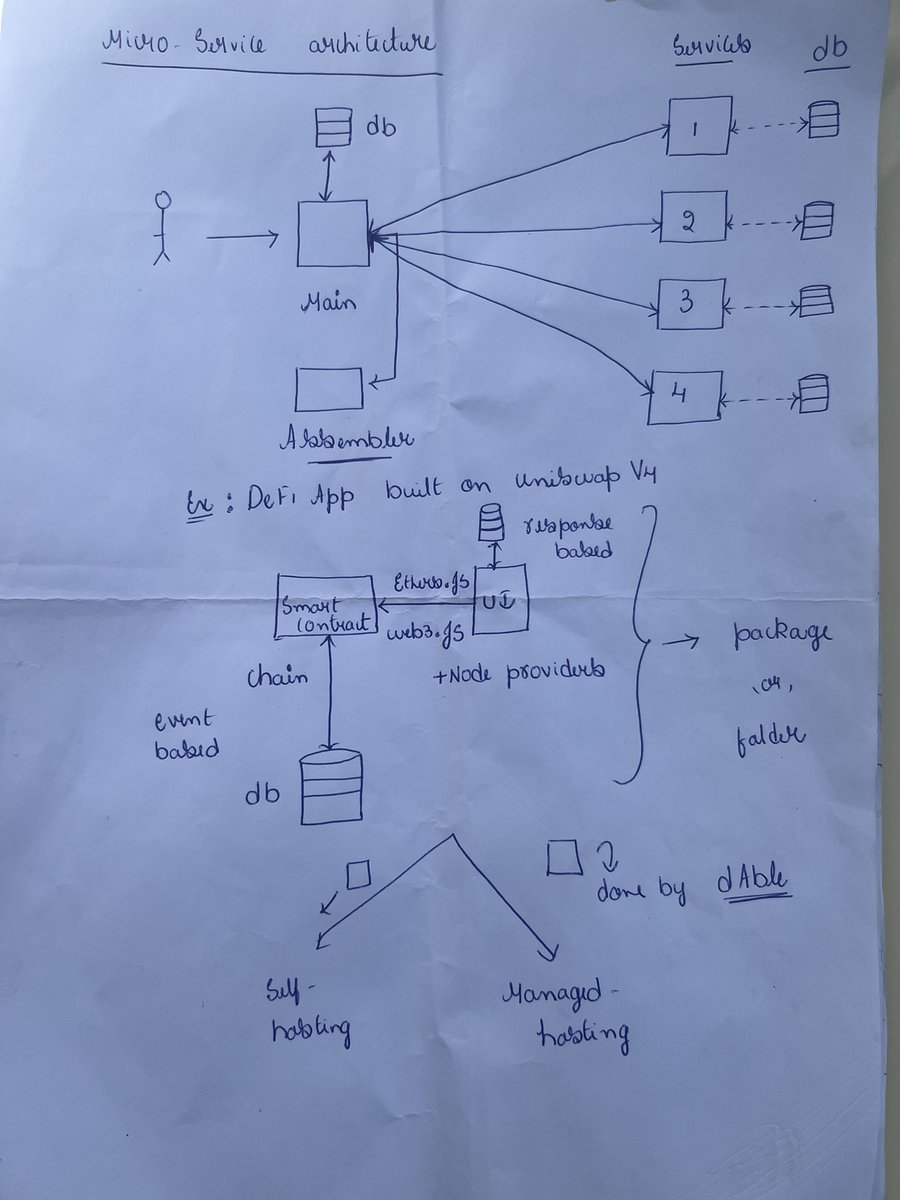 Micro-Service architecture
Services
db
db
1
2
3
4
Main
Assembler
Ex : DeFi App built on uniswap V4
response
based
Ethers.JS
UI
Smart
Contract
web3.JS
+Node providers
chain
event
based
db
package
or,
folder
done by dAble
Self-
hosting
Managed-
hosting